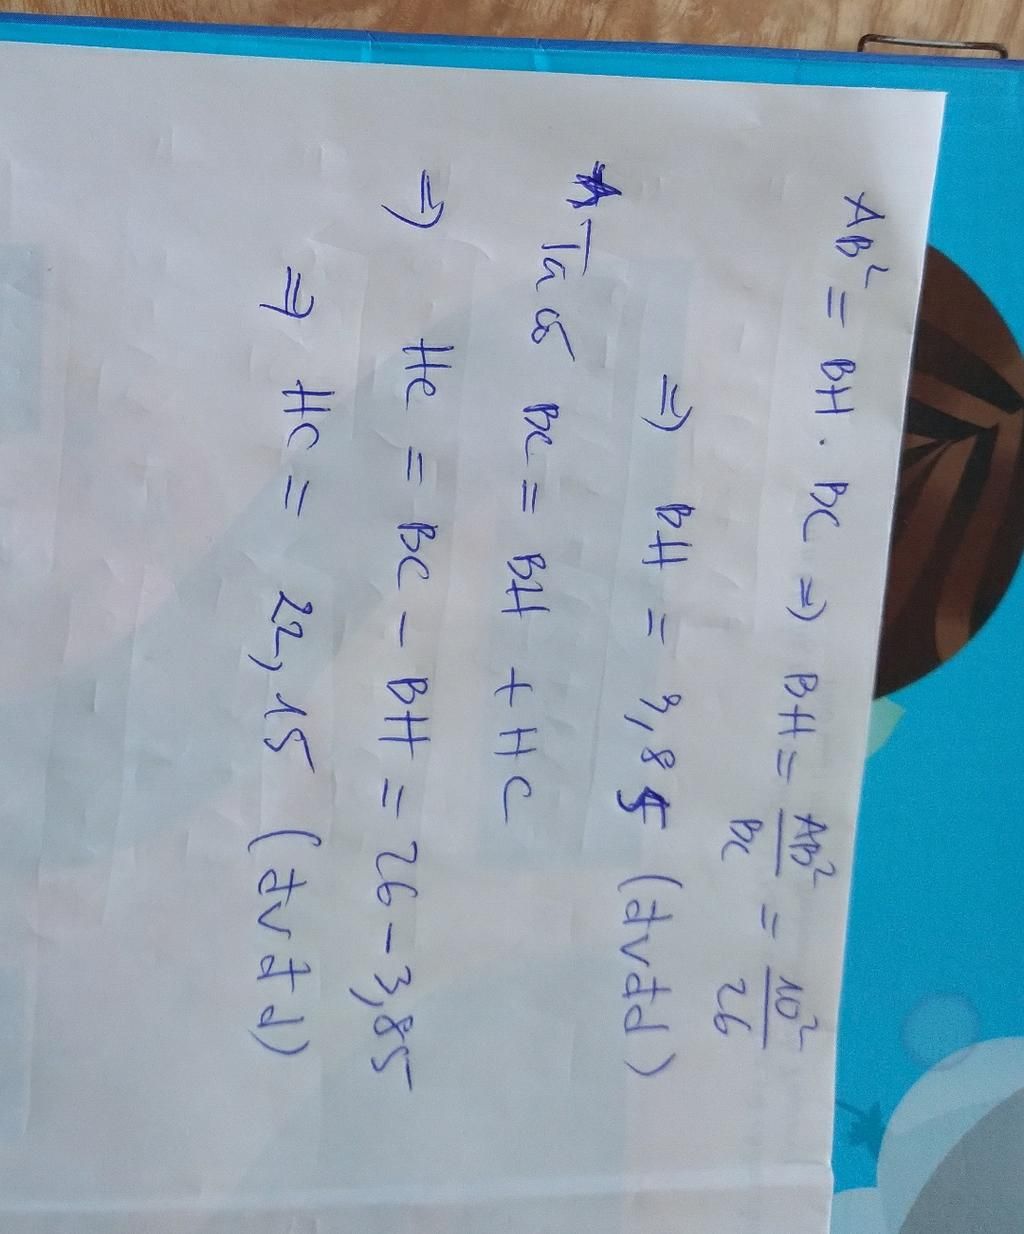 AB² = BH . BC => BH = AB²/BC = 10²/26
=> BH = 3,85 (đvđd)
* Ta có BC = BH + HC
=> HC = BC - BH = 26 - 3,85
=> HC = 22,15 (đvđd)